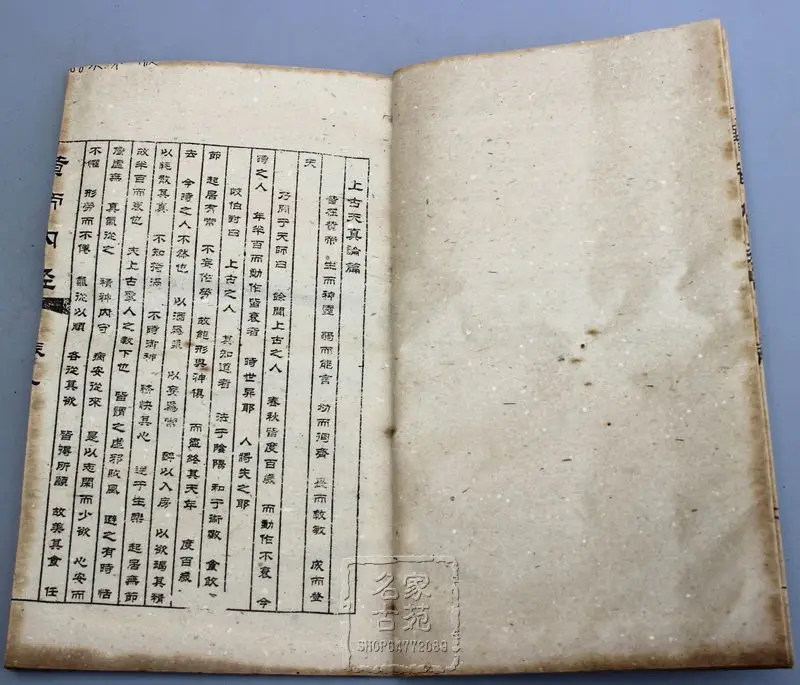 上古天真論篇
昔在黃帝 生而神靈 弱而能言 幼而洵齊 長而敦敏 成而登
天
乃問于天師曰 餘聞上古之人 春秋皆度百歲 而動作不衰 今
時之人 年半百而動作皆衰者 時世異耶 人將失之耶
岐伯對曰 上古之人 其知道者 法于陰陽 和于術數 食飲
節 起居有常 不妄作勞 故能形與神俱 而盡終其天年 度百歲
去 今時之人不然也 以酒為漿 以妄為常 醉以入房 以欲竭其精
以耗散其真 不知持滿 不時御神 務快其心 逆于生樂 起居無節
故半百而衰也 夫上古聖人之教下也 皆謂之虛邪賊風 避之有時 恬
憺虛無 真氣從之 精神內守 病安從來 是以志閑而少欲 心安而
不懼 形勞而不倦 氣從以順 各從其欲 皆得所願 故美其食 任
黃帝內經
名家
古苑
SHOP64772089